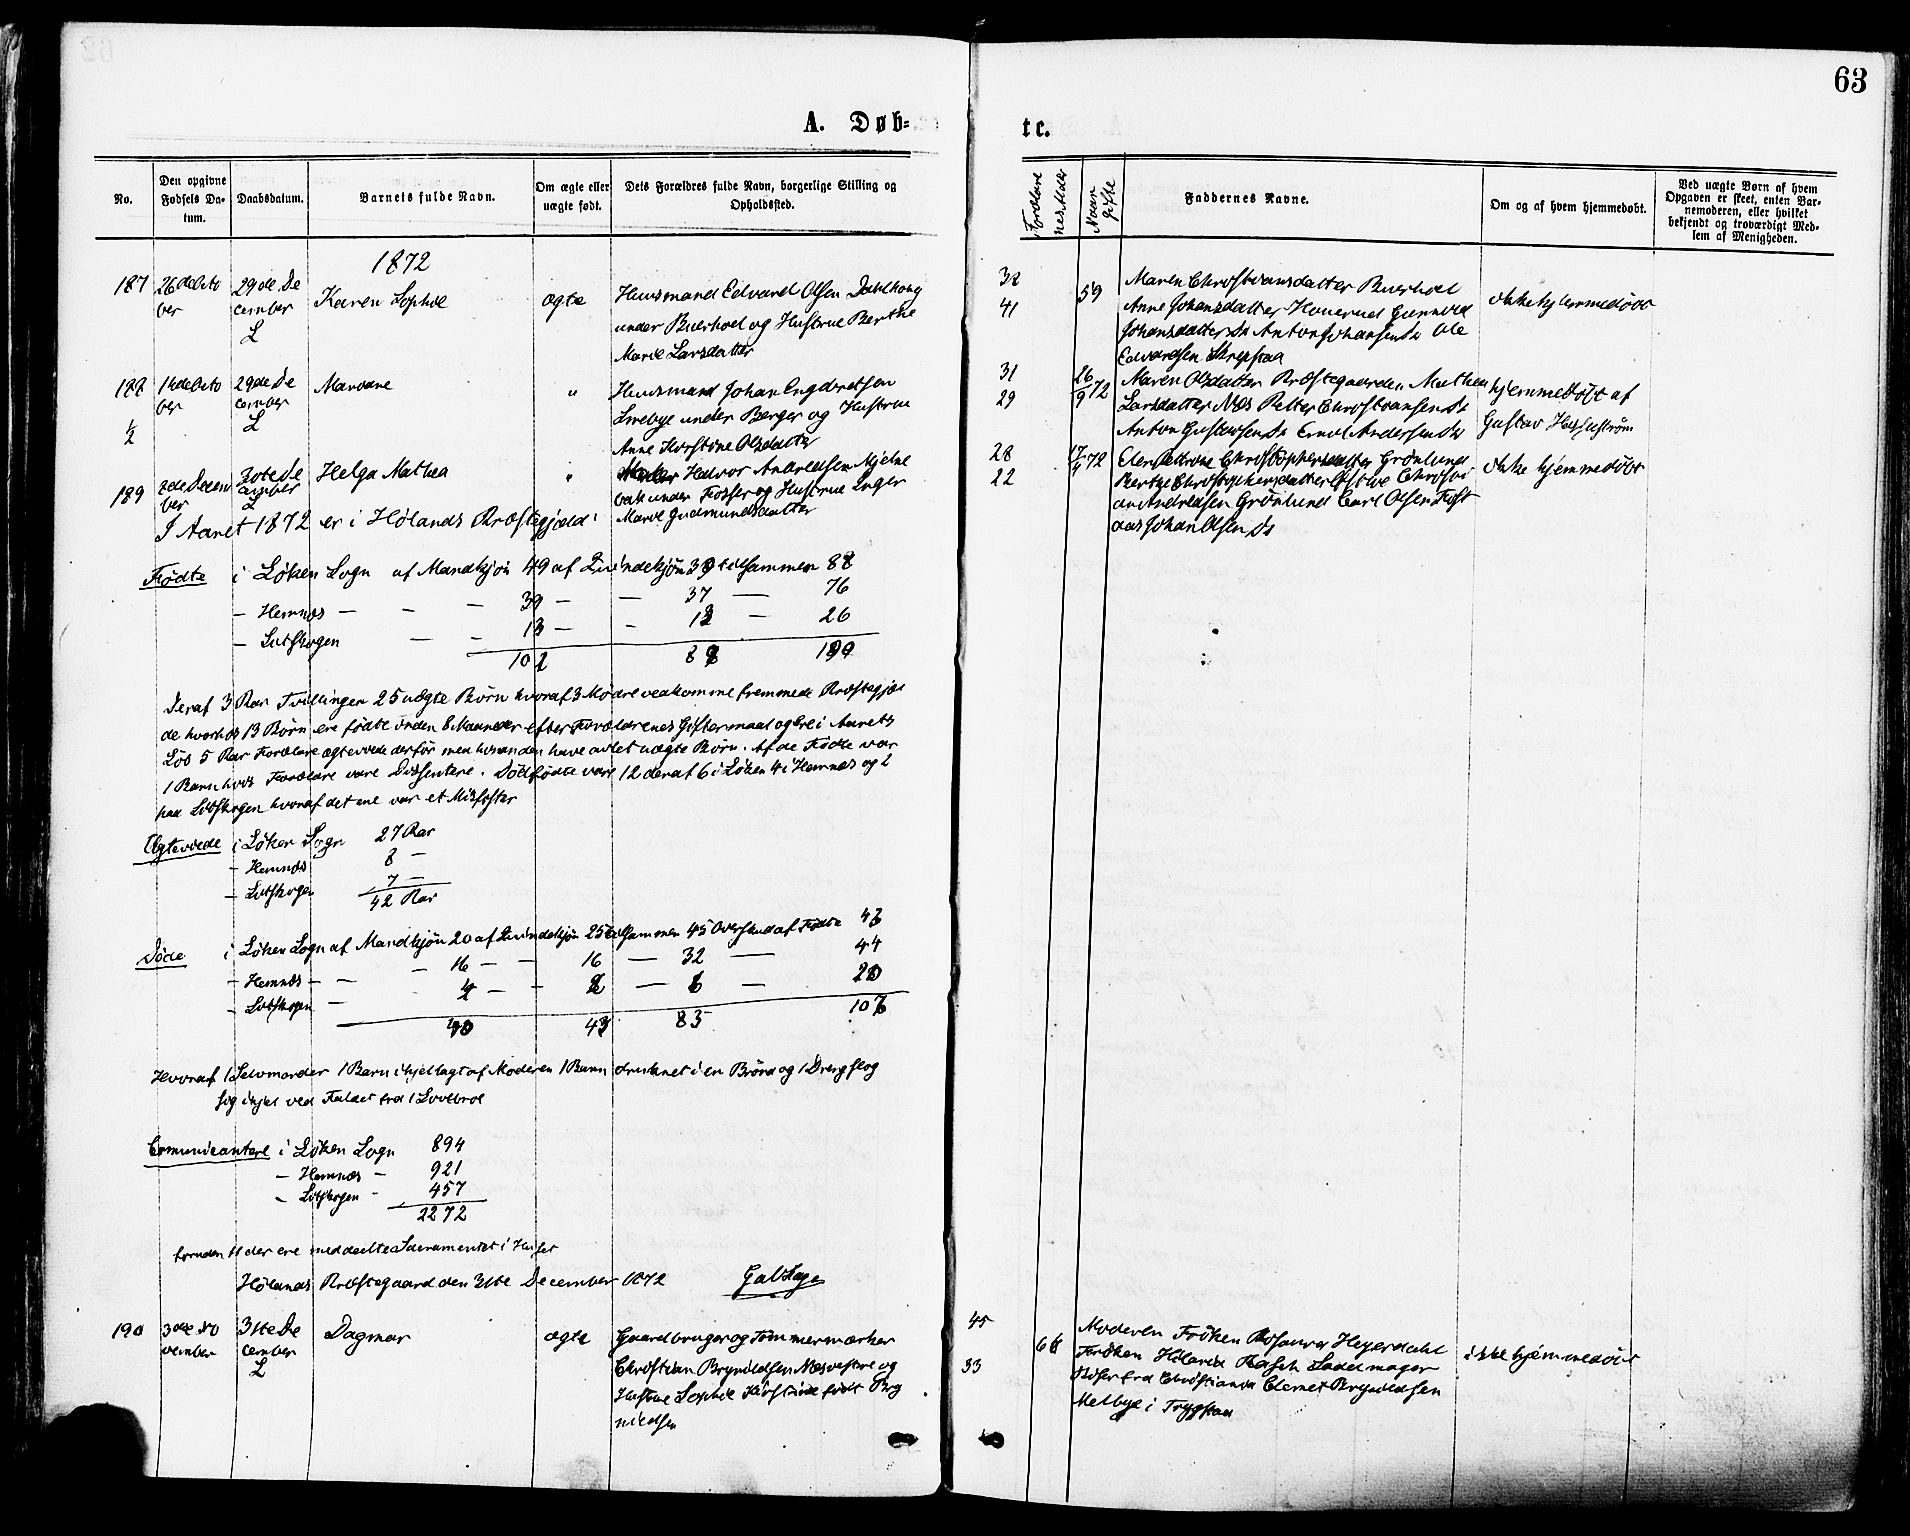 63
A. Døb=
tc.
No.
Den opgivne Fødsels Da-tum.
Daabsdatum.
Barnets fulde Navn.
Om ægte eller uægte født.
Dets Forældres fulde Navn, borgerlige Stilling og Opholdssted.
Forældre nes Alder
Naar Gifte
Faddernes Navne.
Om og af hvem hjemmedøbt.
Ved uægte Børn af hvem Opgaven er skeet, enten Bar-nemoderen, eller hvilket bekjendt og troværdigt Med-lem af Menigheden.
1872
187
29de De
cember
L
Karen Sophie
ægte
Huusmand Edvard Olsen
under Buerhol og Hustrue Berthe
Marie Larsdatter
32
41
59
Maren Christiansdatter Buerhol
Anne Johansdatter Houerud
Johansdatter Ds Anton Johansen Ds Ole
Edvardsen
ikke hjemmedøbt
188
29de De
cember
L
"
Huusmand Johan Engebretsen
under Berger og Hustrue
Anne Kirstine Olsdatter
31
29
26/9 72
Maren Olsdatter Præstegaarden Mathea
Larsdatter Næs Petter Christiansen Ds
Anton Gustavsen Ds Emil Andersen Ds
hjemmedøbt af
Gustav
189
2de Decem
ber
30te De
cember
L
Helga Mathea
"
Halvor Andreassen
under Fosser og Hustrue Inger
Marie Gudmundsdatter
28
22
72
Christophersdatter Grønlund
Berthe Christophersdatter
an Andreasen Grønlund Carl Olsen
aas Johan Olsen Ds
ikke hjemmedøbt
I Aaret 1872 er i Hølands Præstegjæld:
Fødte i Løken Sogn af Mandkjøn 49 af Qvindekjøn 39 tilsammen 88
— Hemnæs — — — 39 — — 37 — 76
— Setskogen — — 13 — — 13 — 26
102 190
Deraf 3 Par Tvillinger 25 uægte Børn hvoraf 3 Mødre vedkomme fremmede Præstegjæl
de hvorhos 13 Børn ere fødte inden 8 Maaneder efter Forældrenes Giftermaal og ere i Aarets
Løb 5 Par Forældre ægteviede der før med hinanden have avlet uægte Børn. Af de Fødte var
1 Barn hvis Forældre vare Dissentere. Dødfødte vare 12 deraf 6 i Løken 4 i Hemnæs og 2
paa Setskogen hvoraf det ene var et Misfoster
Ægteviede i Løken Sogn 27 Par
— Hemnæs 8 —
— Setskogen 7 —
42 Par
Døde i Løken Sogn af Mandkjøn 20 af Qvindekjøn 25 tilsammen 45 Overskud af Fødte 43
— Hemnæs — — 16 — — 16 — 32 — 44
— Setskogen — 4 — — — — 20
40 43 83 107
Hvoraf 1 Selvmorder 1 Barn ihjellagt af Moderen 1 Barn druknet i en Brønd og 1 Dreng slog
sig ihjel ved Faldet fra 1
Communicantere i Løken Sogn 894
— Hemnæs — 921
— Setskogen — 457
2272
foruden 11 der ere meddeelte Sacramentet i Huset
Hølands Præstegaard den 31te December 1872
190
3die No
vember
31te De
cember
L
Dagmar
ægte
Gaardbruger og Tømmermærker
Christian Brynildsen Næs vestre og
Hustrue Sophie Kirstine født Bry
nildsen
45
33
68
Moderen Frøken Rosaura Heyerdahl
Frøken Hilaria Rasch Sadelmager
fra Christiania Clemet Brynildsen
Melbye i Trygstad
ikke hjemmedøbt